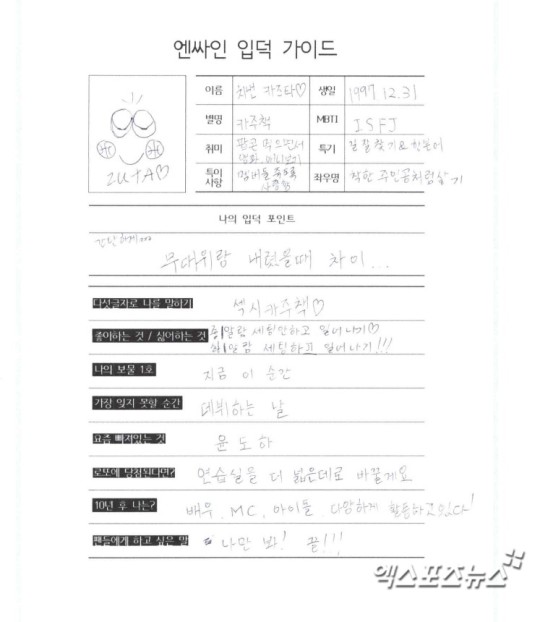 엔싸인 입덕 가이드
이름 카즈타♡ 생일 1997 12.31
별명 카주책 MBTI ISFJ
취미 팝콘 먹으면서 영화 특기
특이사항 멤버들 좌우명 착한 주인공처럼 살기
ZUTA♡
나의 입덕 포인트
간단하게
무대위랑 내려왔을때 차이...
다섯글자로 나를 말하기 섹시카주책♡
좋아하는 것 / 싫어하는 것 알람 세팅안하고 일어나기♡
알람 세팅하고 일어나기!!!
나의 보물 1호 지금 이 순간
가장 잊지 못할 순간 데뷔하는 날
요즘 빠져있는 것 윤도하
로또에 당첨된다면? 연습실을 더 넓은데로 바꿀게요
10년 후 나는? 배우, MC, 아이돌, 다양하게 활동하고있다!
팬들에게 하고 싶은 말 나만 봐! 끝!!!
엑스포츠뉴스